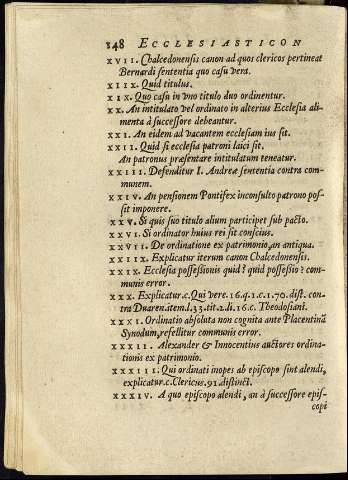 148 ECCLESIASTICON
XVII. Chalcedonensis canon ad quos clericos pertineat
Bernardi sententia quo casu vera.
XIIX. Quid titulus.
XIX. Quo casu in vno titulo duo ordinentur.
XX. An intitulato vel ordinato in alterius Ecclesia ali-
menta à successore debeantur.
XXI. An eidem ad vacantem ecclesiam ius sit.
XXII. Quid si ecclesia patroni laici sit.
An patronus præsentare intitulatum teneatur.
XXIII. Defenditur I. Andreæ sententia contra com-
munem.
XXIV. An pensionem Pontifex inconsulto patrono pos-
sit imponere.
XXV. Si quis suo titulo alium participet sub pacto.
XXVI. Si ordinator huius rei sit conscius.
XXVII. De ordinatione ex patrimonio, an antiqua.
XXIIX. Explicatur iterum canon Chalcedonensis.
XXIX. Ecclesia possessionis quid? quid possessio? com-
munis error.
XXX. Explicatur.c.Qui vere.16.q.1.c.1.70.dist. con-
tra Duaren.item.l.33.tit.2.li.16.c. Theodosiani.
XXXI. Ordinatio absoluta non cognita ante Placentinā
Synodum, refellitur communis error.
XXXII. Alexander & Innocentius auctores ordina-
tionis ex patrimonio.
XXXIII. Qui ordinati inopes ab episcopo sint alendi,
explicatur.c.Clericus.91.distinct.
XXXIV. A quo episcopo alendi, an à successore epis-
copi